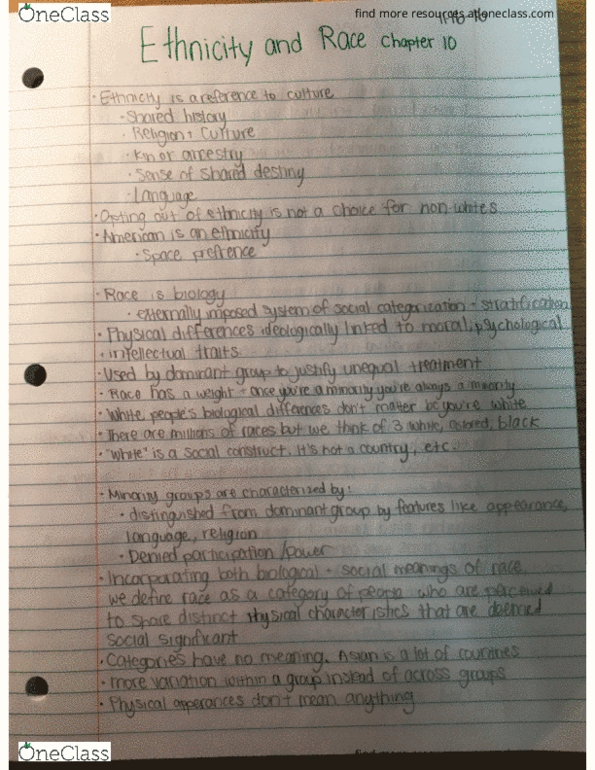 OneClass
find more resources at oneclass.com
Ethnicity and Race chapter 10
· Ethnicity is a reference to culture
· Shared history
· Religion + Culture
· Kin or ancestry
· Sense of shared destiny
· Language
· Opting out of ethnicity is not a choice for non whites
· American is an ethnicity
· Space prefrence
· Race is biology
· externally imposed system of social categorization + stratification
· Physical differences ideologically linked to moral, psychological
· intellectual traits
· Used by dominant group to justify unequal treatment
· Race has a weight - once you're a minority you're always a minority
· White people's biological differences don't matter bc you're white
· There are millions of races but we think of 3 white, colored, black
· "White" is a social construct. It's not a country, etc.
· Minority groups are characterized by:
· distinguished from dominant group by features like appearance,
language, religion
· Denied participation/power
· Incorporating both biological + social meanings of race,
we define race as a category of people who are perceived
to share distinct physical characteristics that are deemed
social significant
· Categories have no meaning. Asian is a lot of countries
· more variation within a group instead of across groups
· Physical apperances don't mean anything
OneClass